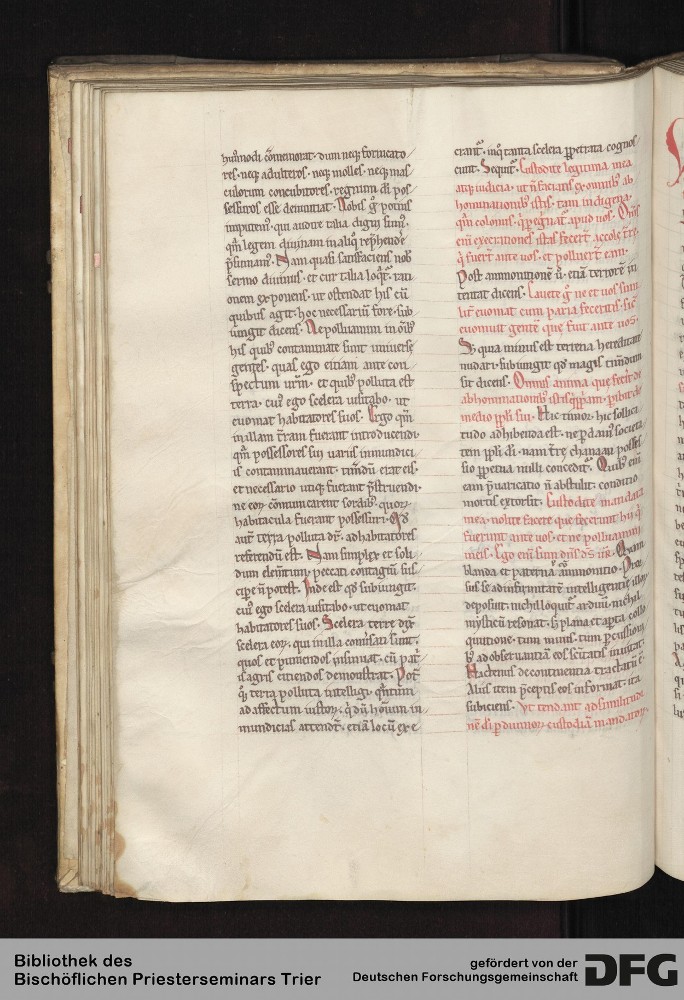 huiꝰmodi cōmemorat· dum neqꝫ fornicato
res· neqꝫ adulteros· neqꝫ molles· neqꝫ mas
culorum concubitores· regnum di pos
sessuros esse denuntiat· Nobis g̊ potius
imputem᷒· qui audire talia digni sum᷒·
qm̄ legem diuinam in aliq̊
p̄sumam᷒· Nam quasi satisfaciens nob̄
sermo diuinus· et cur talia loq̄t᷑· rati
onem exponens· ut ostendat his cū
quibus agit· hoc necessariū fore· sub
iungit dicens· Ne polluamini in oībꝰ
his quibꝰ contaminate sunt uniuerse
gentes· quas ego eitiam ante con
spectum urm̄· et quibꝰ polluta est
terra· cuiꝰ ego scelera uisitabo· ut
euomat habitatores suos· Ergo qm̄
in illam tr̄am fuerant introducendi·
qm̄ possessores sui variis inmundici
is contaminauerant·
et necessario utiqꝫ fuerant p̄struendi·
ne eoꝝ cōmunicarent sordibꝰ· quoꝝ
habitacula fuerant possessuri· Qd̄
aut̄ terra polluta dr̄· ad habitatores
referendū est· Nam simplex et soli
dum elem̄tum· peccati contagiū sus
cipe n̄ potest· Inde est qd̄ subiungit·
cuiꝰ ego scelera uisitabo· ut euomat
habitatores suos· Scelera terre dix̄
scelera eoꝝ· qui in illa cōmorati sunt·
quos et puniendos insinuat· cū
is agris eitiendos demonstrat· Pot̄
terra polluta intelligi· quātum
ad affectum iustoꝝ· q̄ dū hoīum in
mundicias attendt̄· etiā locū exe
crant᷑· inq̊ tanta scelera ꝑpetrata cognos
cunt· Sequit᷑· Custodite legitima mea
atqꝫ iudicia· ut n̄ faciatis ex omnibꝰ ab
hominationibꝰ istis· tam indigena·
qm̄ colonus· q̄ ꝑegr̄nat᷑ apud uos· Om̄s
eni execrationes istas fecert̄ accole tr̄e·
q̄ fuert̄ ante uos· et polluert̄ eam·
Post ammonitionē ū· etiā terrore in
tentat dicens· Cauete g̊ ne et uos simi
lit᷑ euomat cum paria feceritis· sic̄
euomuit gentē que fuit ante uos·
Sꝫ quia minus est terrena hereditate
nudari· subiungit qd̄ magis timdum
sit dicens· Omnis anima que fecit᷑ de
abhominationibꝰ istis ꝗppiam· peribit de
medio ppli sui· Hic timor· hic sollici
tudo adhibenda est· ne perdam᷒ societa
tem ppli di· nam tr̄e chanaan posses
sio ꝑpetua nulli concedit᷑· Quibꝰ eni
eam p̄uaricatio n̄ abstulit· conditio
mortis extorsit· Custodite mandata
mea· nolite facere que fecerunt hii q̄
fuerunt ante uos· et ne polluamini
in eis· Ego eni sum dn̄s ds̄ ur̄· Quam
blanda et paterna ammonitio· Pror
sus se ad infirmitatē intelligentie illoꝝ
deposuit· nichil loquit᷑ arduū· nichil
mysticū resonat· sꝫ plana et aperta collo
quutione· tum minis· tum percussione
hꝰ ad obseruantiā eos scītatis inuitat·
Hactenus de continentia tractatū ē·
Alias item p̄ceptis eos informat· ita
subiciens· Vt tendant ad similitudi
nē di per duinoꝝ custodiam mandatoꝝ·
Bibliothek des
Bischöflichen Priesterseminars Trier
gefördert von der
Deutschen Forschungsgemeinschaft
DFG